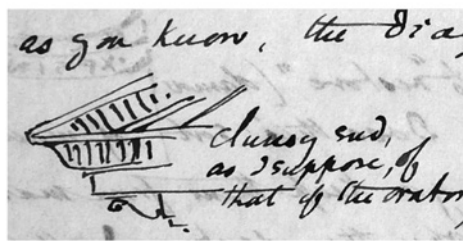 as you know, the dia
clumsy end,
as I suppose, of
that of the orator